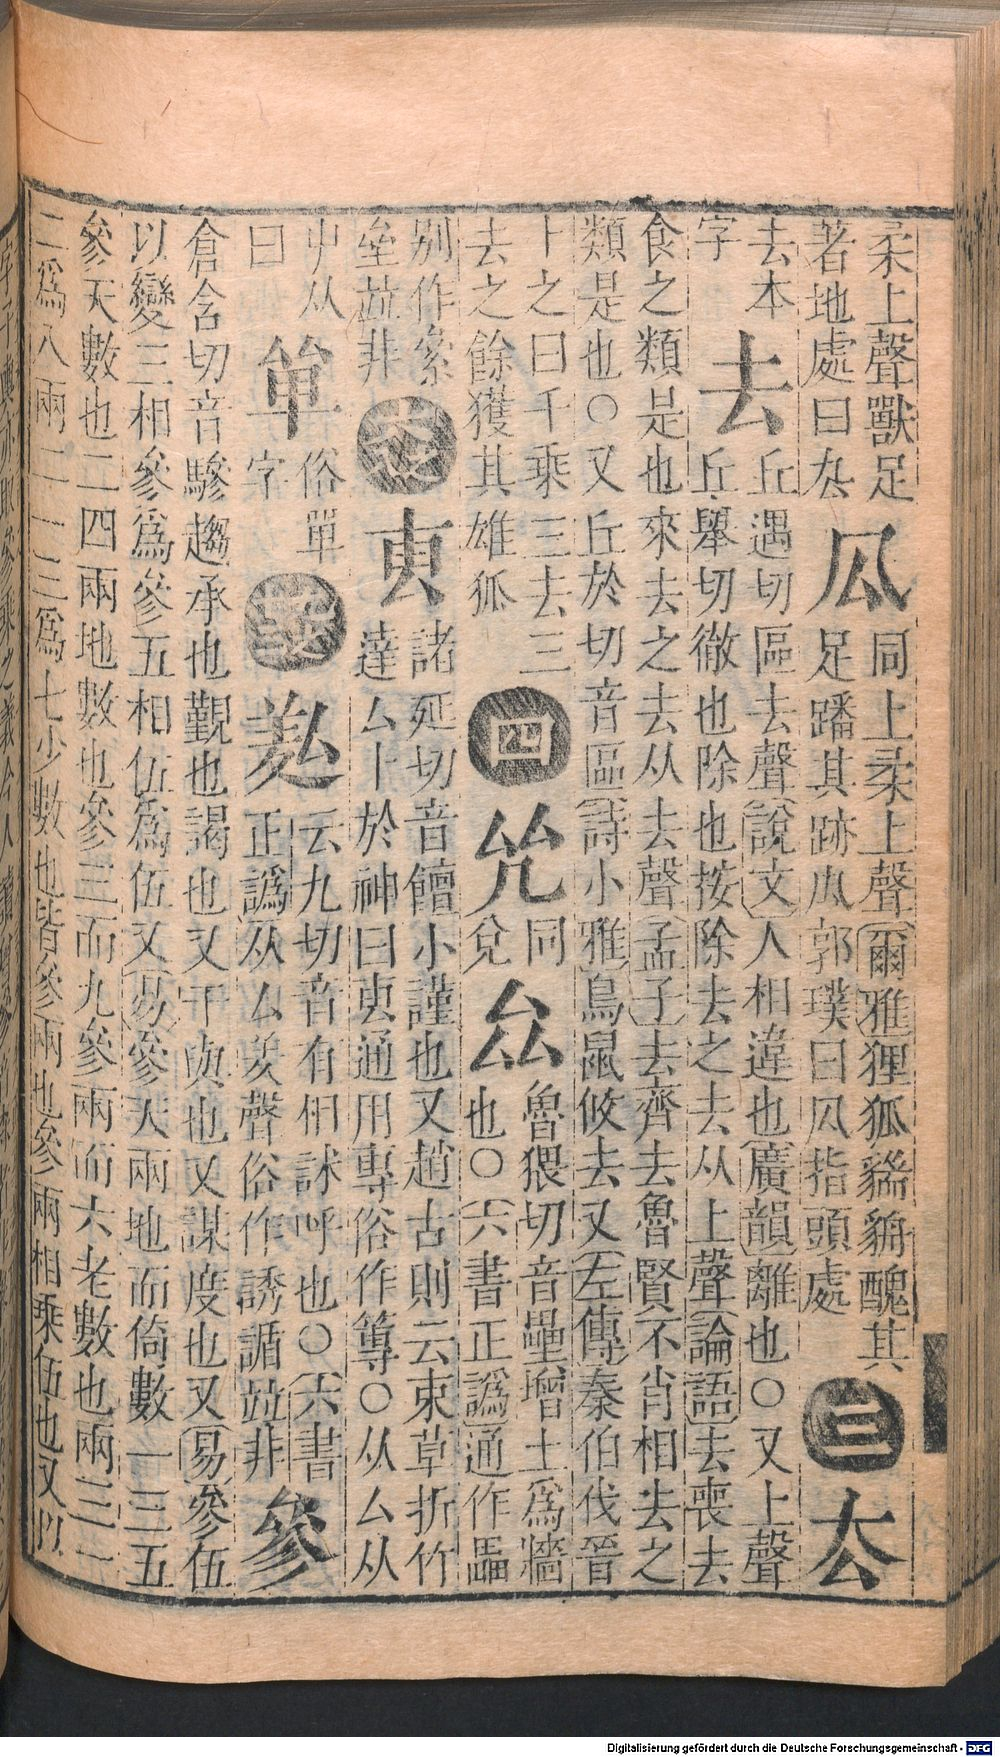 柔上聲獸足
著地處曰厹
同上柔上聲爾雅狸狐貒貈醜其
足蹯其跡厹郭璞曰厹指頭處
三
厺
去本
字
去
丘遇切區去聲說文人相違也廣韻離也○又上聲
丘舉切徹也除也按除去之去从上聲論語去喪去
食之類是也來去之去从去聲孟子去齊去魯賢不肖相去之
類是也○又丘於切音區詩小雅鳥鼠攸去又左傳秦伯伐晉
卜之曰千乘三去三
去之餘獲其雄狐
四
兊
同
兌
厽
魯猥切音壘增土爲牆
也○六書正譌通作畾
別作絫
垒𠀤非
叀
諸延切音饘小謹也又趙古則云束草折竹
達厶卜於神曰叀通用專俗作篿○从厶从
屮从
曰
单
俗單
字
羑
云九切音有相訹呼也○六書
正譌从厶羑聲俗作誘䛻𠀤非
參
倉含切音驂趨承也覲也謁也又干與也又謀度也又易參伍
以變三相參爲參五相伍爲伍又易參天兩地而倚數一三五
參天數也二四兩地數也參三而九參兩而六老數也兩三一
二爲八兩二一三爲七少數也皆參兩也參兩相乘伍也又以
Digitalisierung gefördert durch die Deutsche Forschungsgemeinschaft - DFG